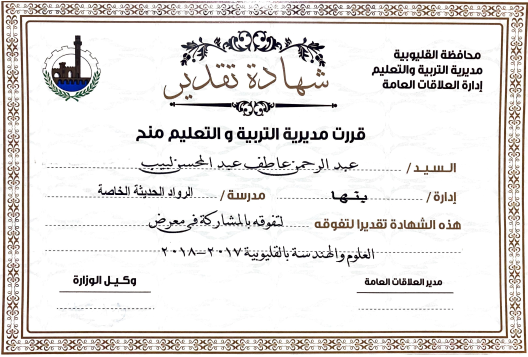 محافظة القليوبية
مديرية التربية والتعليم
إدارة العلاقات العامة
شهادة تقدير
قررت مديرية التربية و التعليم منح
السيد / عبد الرحمن عاطف عبد المحسن لبيب
إدارة / بنها مدرسة / الرواد الحديثة الخاصة
هذه الشهادة تقديرا لتفوقه لتفوقه بالمشاركة فى معرض
العلوم والهندسة بالقليوبية ٢٠١٧-٢٠١٨
مدير العلاقات العامة وكيل الوزارة